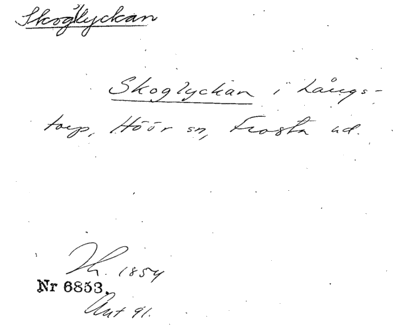 Skoglyckan
Skoglyckan i Långs-
torp, Höör sn, Frosta hd.
Th. 1854
Nr 6853.
Ant 91.